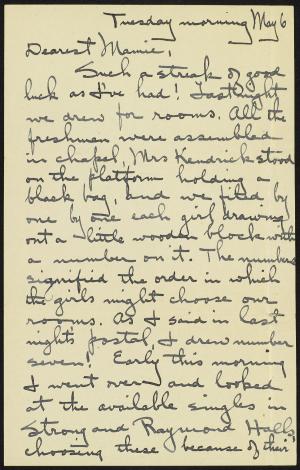 Tuesday morning May 6
Dearest Mamie,
Such a streak of good
luck as I've had! Last night
we drew for rooms. All the
freshmen were assembled
in chapel, Mrs Kendrick stood
on the platform holding a
black bag, and we filed by
one by one each girl drawing
out a little wooden block with
a number on it. The numbers
signified the order in which
the girls might choose our
rooms. As I said in last
night's postal, I drew number
seven! Early this morning
I went over and looked
at the available singles in
Strong and Raymond Halls,
choosing these because of their